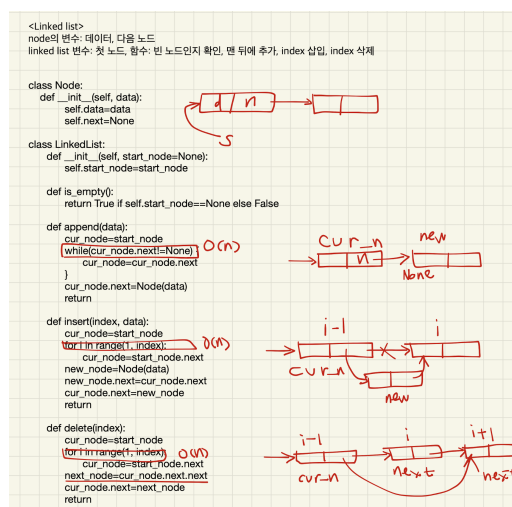 <Linked list>
node의 변수: 데이터, 다음 노드
linked list 변수: 첫 노드, 함수: 빈 노드인지 확인, 맨 뒤에 추가, index 삽입, index 삭제
class Node:
def __init__(self, data):
self.data=data
self.next=None
d n
S
class LinkedList:
def __init__(self, start_node=None):
self.start_node=start_node
def is_empty():
return True if self.start_node==None else False
def append(data):
cur_node=start_node
while(cur_node.next!=None) O(n)
cur_node=cur_node.next
}
cur_node.next=Node(data)
return
cur_n new
n
None
def insert(index, data):
cur_node=start_node
for i in range(1, index): O(n)
cur_node=start_node.next
new_node=Node(data)
new_node.next=cur_node.next
cur_node.next=new_node
return
i-1 i
cur_n
new
def delete(index):
cur_node=start_node
for i in range(1, index): O(n)
cur_node=start_node.next
next_node=cur_node.next.next
cur_node.next=next_node
return
i-1 i i+1
cur_n next